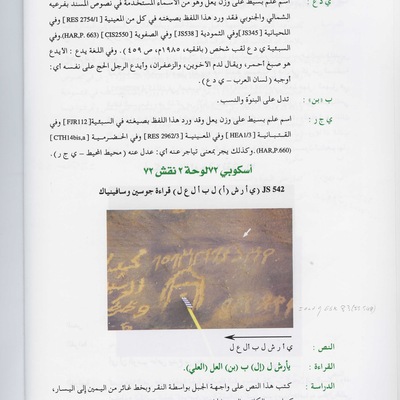 ي د ع : اسم علم بسيط على وزن يعل وهو من الأسماء المستخدمة في نصوص المسند بفرعيه
الشمالي والجنوبي فقد ورد هذا اللفظ بصيغته في كل من المعينية [RES 2754/1] وفي
اللحيانية [JS345] وفي الثمودية [JS538] وفي الصفوية [CIS2550] (HAR,P. 663). وفي
السبئية ي د ع لقب شخص (بافقيه، ١٩٨٥م، ص ٤٥٩). وفي اللغة يدع : الايدع
هو صبغ أحمر، ويقال لدم الأخوين، والزعفران، وأيدع الرجل الحج على نفسه أي:
أوجبه (لسان العرب – ي د ع).
ب «بن» : تدل على البنوّة والنسب.
ي ج ر : اسم علم بسيط على وزن يعل وقد ورد هذا اللفظ بصيغته في السبئية [FJR112] وفي
القتبانية [HEA1/3] وفي المعينية [RES 2962/3] وفي الحضرمية [CTH14bis,a]
(HAR,P.660). وكذلك يجر بمعنى تياجر عنه أي: عدل عنه (محيط المحيط – ي ج ر).
أسكوبي ٧٢ لوحة ٢ نقش ٧٢
JS 542 (ي أ ر ش (أ) ل ب أ ل ع ل) قراءة جوسين وسافينياك
النص : ي أ ر ش ل ب أ ل ع ل
القراءة : يأرش ل (إل) ب (بن) العل (العلي).
الدراسة : كتب هذا النص على واجهة الجبل بواسطة النقر وبخط غائر من اليمين إلى اليسار،